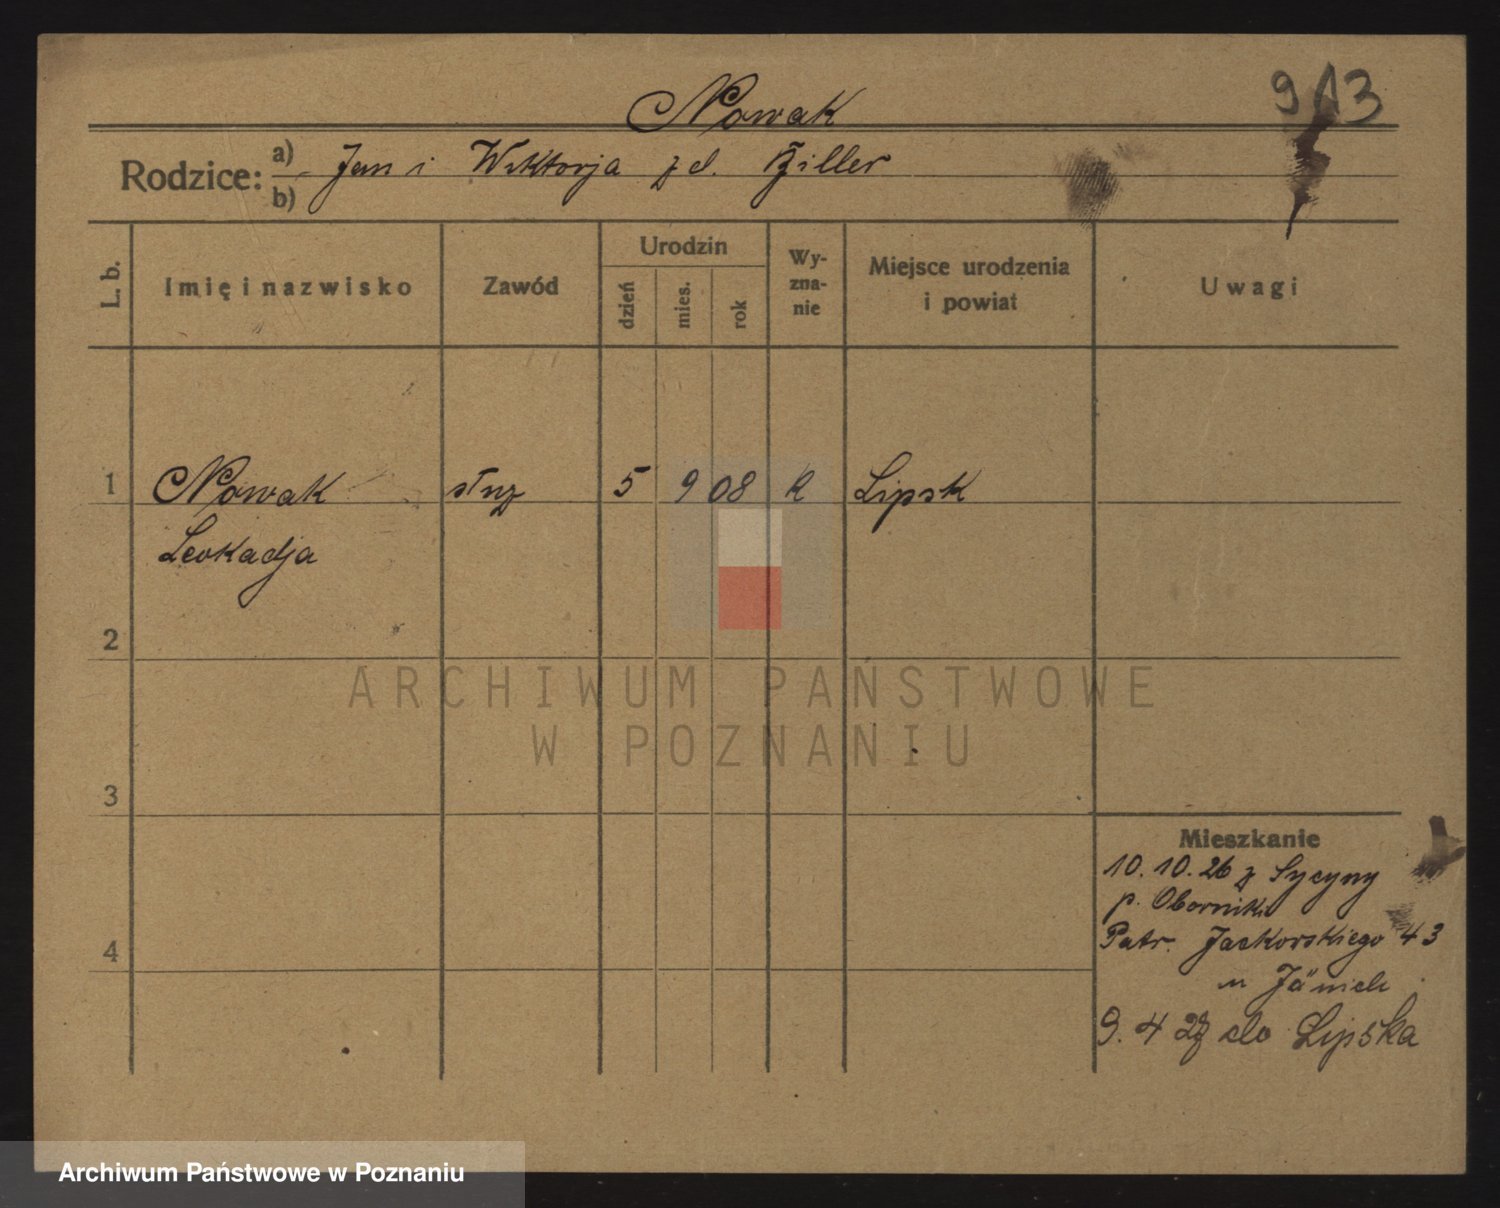 913
Nowak
Rodzice: a) Jan i Wiktorja z d.
b)
L. b.
Imię i nazwisko
Zawód
Urodzin
dzień
mies.
rok
Wy-
zna-
nie
Miejsce urodzenia
i powiat
Uwagi
1 Nowak służ 5 9 08 R Lipsk
Leokadja
2
ARCHIWUM PAŃSTWOWE
W POZNANIU
3
Mieszkanie
10.10.26 z Sycyny
p. Oborniki
4
Patr. Jackowskiego 43
u
9.4 27 do Lipska
Archiwum Państwowe w Poznaniu